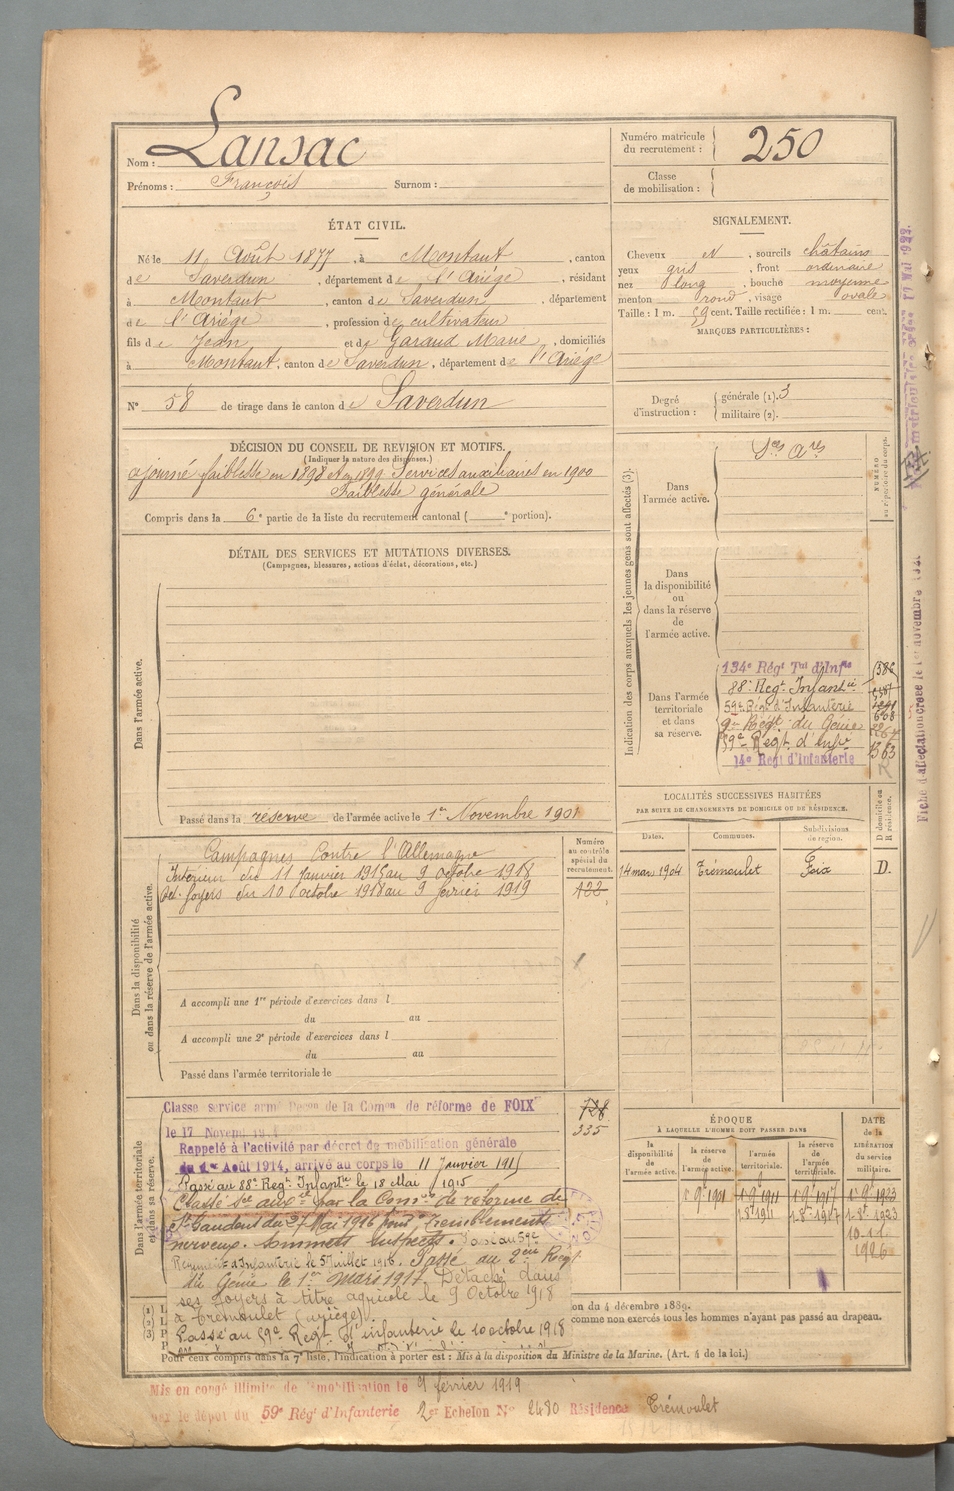 Nom : Lansac
Prénoms : François Surnom :
Numéro matricule du recrutement : 250
Classe de mobilisation :
ÉTAT CIVIL.
Né le 11 Août 1877, à Montaut, canton
de Saverdun, département de l'Ariège, résidant
à Montaut, canton de Saverdun, département
de l'Ariège, profession de cultivateur
fils de Jean et de Garaud Marie, domiciliés
à Montaut, canton de Saverdun, département de l'Ariège
N° 58 de tirage dans le canton de Saverdun
SIGNALEMENT.
Cheveux N, sourcils châtains
yeux gris, front ordinaire
nez long, bouche moyenne
menton rond, visage ovale
Taille : 1 m. 59 cent. Taille rectifiée : 1 m. cent.
MARQUES PARTICULIÈRES :
Degré d'instruction : générale (1). 3
militaire (2).
DÉCISION DU CONSEIL DE REVISION ET MOTIFS.
(Indiquer la nature des dispenses.)
ajourné faiblesse en 1898 et en 1899. Services auxiliaires en 1900
Faiblesse générale
Compris dans la 6e partie de la liste du recrutement cantonal ( e portion).
DÉTAIL DES SERVICES ET MUTATIONS DIVERSES.
(Campagnes, blessures, actions d'éclat, décorations, etc.)
Dans l'armée active.
Passé dans la réserve de l'armée active le 1er Novembre 1901
Indication des corps auxquels les jeunes gens sont affectés (3).
NUMÉRO au répertoire du corps.
Dans l'armée active.
Sces Ares
Dans la disponibilité ou dans la réserve de l'armée active.
Dans l'armée territoriale et dans sa réserve.
134e Régt Tal d'Infie
88e Régt Infantie
59e Régt d'Infanterie
2e Régt du Génie
59e Régt d'Infie
14e Régt d'Infanterie
1363
LOCALITÉS SUCCESSIVES HABITÉES
PAR SUITE DE CHANGEMENTS DE DOMICILE OU DE RÉSIDENCE.
D domicile ou R résidence.
Dates. Communes. Subdivisions de région.
14 mars 1904 Trémoulet Foix D.
Dans la disponibilité ou dans la réserve de l'armée active.
Numéro au contrôle spécial du recrutement.
422
Campagnes Contre l'Allemagne
Intérieur du 11 janvier 1915 au 9 octobre 1918
Dét. foyers du 10 octobre 1918 au 9 février 1919
A accompli une 1re période d'exercices dans l
du au
A accompli une 2e période d'exercices dans l
du au
Passé dans l'armée territoriale le
Dans l'armée territoriale et dans sa réserve.
728
335
Classé service armé Décon de la Comon de réforme de FOIX
le 17 Novemb
Rappelé à l'activité par décret de mobilisation générale
du 1er Août 1914, arrivé au corps le 11 Janvier 1915
Passé au 88e Régt Infantie le 18 Mai 1915
Classé Sce auxre par la Comon de réforme de
St Gaudens du 27 Mai 1916 pour Tremblements
nerveux. Sommets suspects. Passé au 59e
Régiment d'Infanterie le 5 Juillet 1916. Passé au 2eme Régt
du Génie le 1er mars 1917. Détaché dans
ses foyers à titre agricole le 9 Octobre 1918
à Trémoulet (Ariège).
Passé au 59e Régt d'infanterie le 10 octobre 1918
ÉPOQUE
À LAQUELLE L'HOMME DOIT PASSER DANS
la disponibilité de l'armée active.
la réserve de l'armée active.
l'armée territoriale.
la réserve de l'armée territoriale.
DATE de la LIBÉRATION du service militaire.
1 9 1901 1 9 1911 1 9 1917 1 9 1923
1-8 1911 1-8 1917 1-8 1923
10-11
1926
on du 4 décembre 1889.
comme non exercés tous les hommes n'ayant pas passé au drapeau.
Pour ceux compris dans la 7e liste, l'indication à porter est : Mis à la disposition du Ministre de la Marine. (Art. 4 de la loi.)
Mis en congé illimité de démobilisation le 9 février 1919
par le dépôt du 59e Régt d'Infanterie 2e Echelon N° 2480 Résidence Trémoulet
Fiche d'affectation créée le 1er novembre